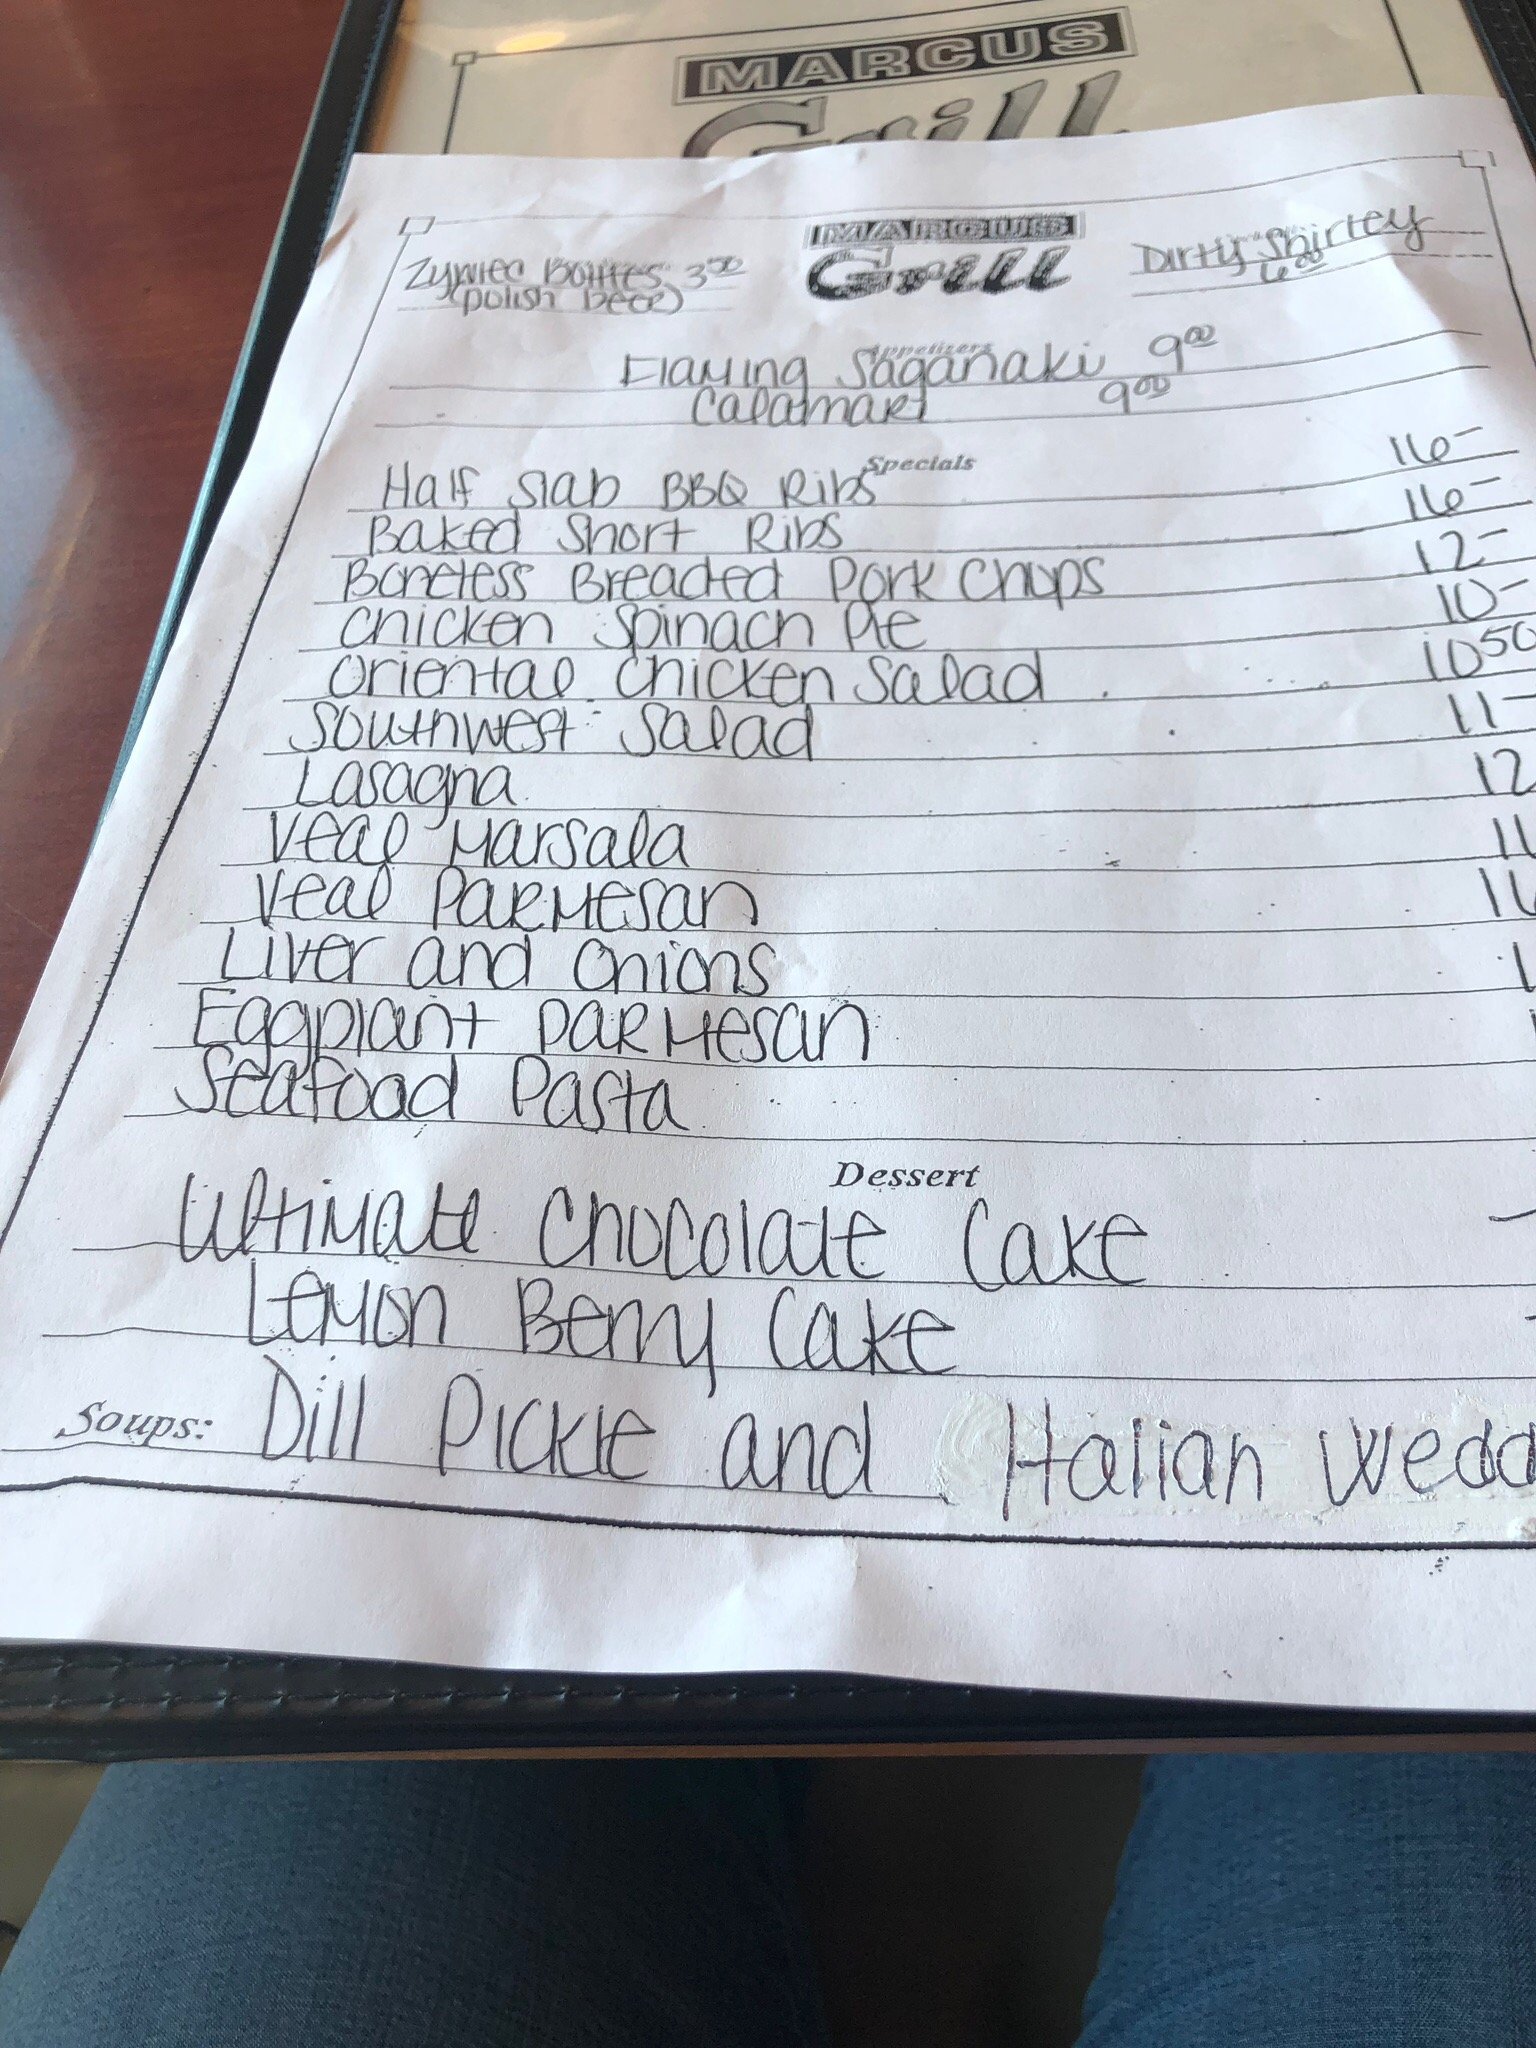 MARCUS
Grill
MARCUS
Grill
Zywiec Bottles 3.50
(polish beer)
Dirty Shirley
6.00
Appetizers
Flaming Saganaki 9.00
Calamari 9.00
Specials
Half Slab BBQ Ribs 16-
Baked Short Ribs 16-
Boneless Breaded Pork Chops 12-
Chicken Spinach Pie 10-
Oriental Chicken Salad 10.50
Southwest Salad 11-
Lasagna 12
Veal Marsala
Veal Parmesan
Liver and Onions
Eggplant Parmesan
Seafood Pasta
Dessert
Ultimate Chocolate Cake
Lemon Berry Cake
Soups: Dill Pickle and Italian Wedd